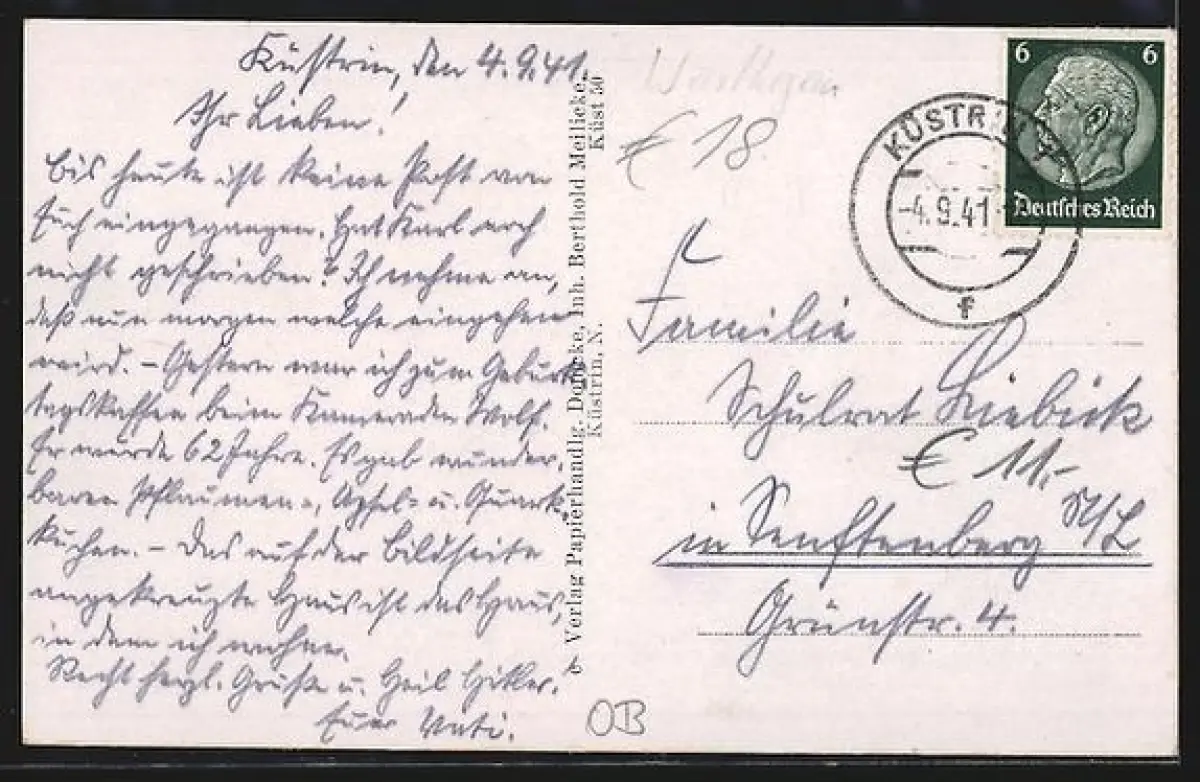 Küstrin, den 4.9.41.
Ihr Lieben!
bis heute ist keine Post von
Euch eingegangen. Hat Karl noch
nicht geschrieben? Ich nehme an,
daß nun morgen welche eingehen
wird. – Gestern war ich zum Geburts
tagskaffee beim Kameraden Wolf.
Er wurde 62 Jahre. Es gab wunder-
baren Pflaumen-, Apfel- u. Quark-
kuchen. – Das auf der Bildseite
angekreuzte Haus ist das Haus,
in dem ich wohne.
Recht herzl. Grüße u. Heil Hitler.
Euer Vati.
Verlag Papierhandlg. Inh. Berthold Meilicke,
Küstrin, N. Küst 50
€ 18
6 6
Deutsches Reich
KÜSTRIN
-4.9.41
f
Familie
Schulrat Liebick
€ 11,-
in Senftenberg N/L
Grünstr. 4.
OB